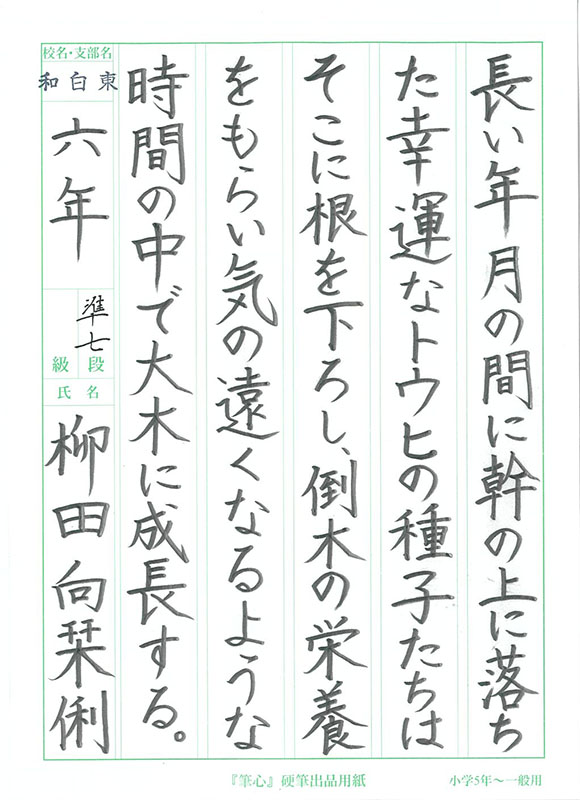 長い年月の間に幹の上に落ち
た幸運なトウヒの種子たちは
そこに根を下ろし、倒木の栄養
をもらい気の遠くなるような
時間の中で大木に成長する。
校名・支部名
和白東
六年
準七
級段
氏名
柳田向栞俐
『筆心』硬筆出品用紙
小学5年〜一般用